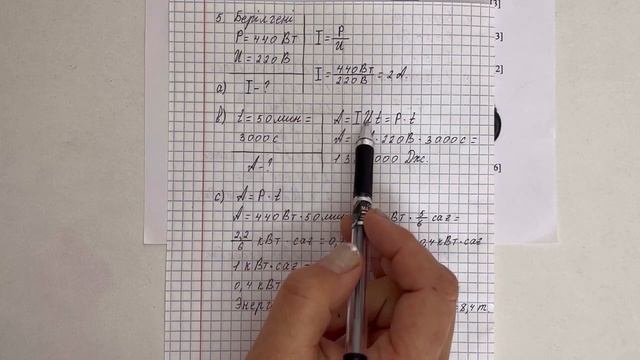 5. Берілгені
P = 440 Вт
U = 220 В
I = P/U
I = 440Вт/220В = 2 А.
а) I - ?
b) t = 50 мин =
3000 с
A - ?
A = I U t = P · t
· 220В · 3000с =
000 Дж.
c) A = P · t
A = 440 Вт · 50 мин
Вт · 5/6 сағ =
2,2/6 кВт · сағ = 0,
0,4 кВт · сағ
1 кВт · сағ =
0,4 к
= 8,4 т
3]
2]
6]